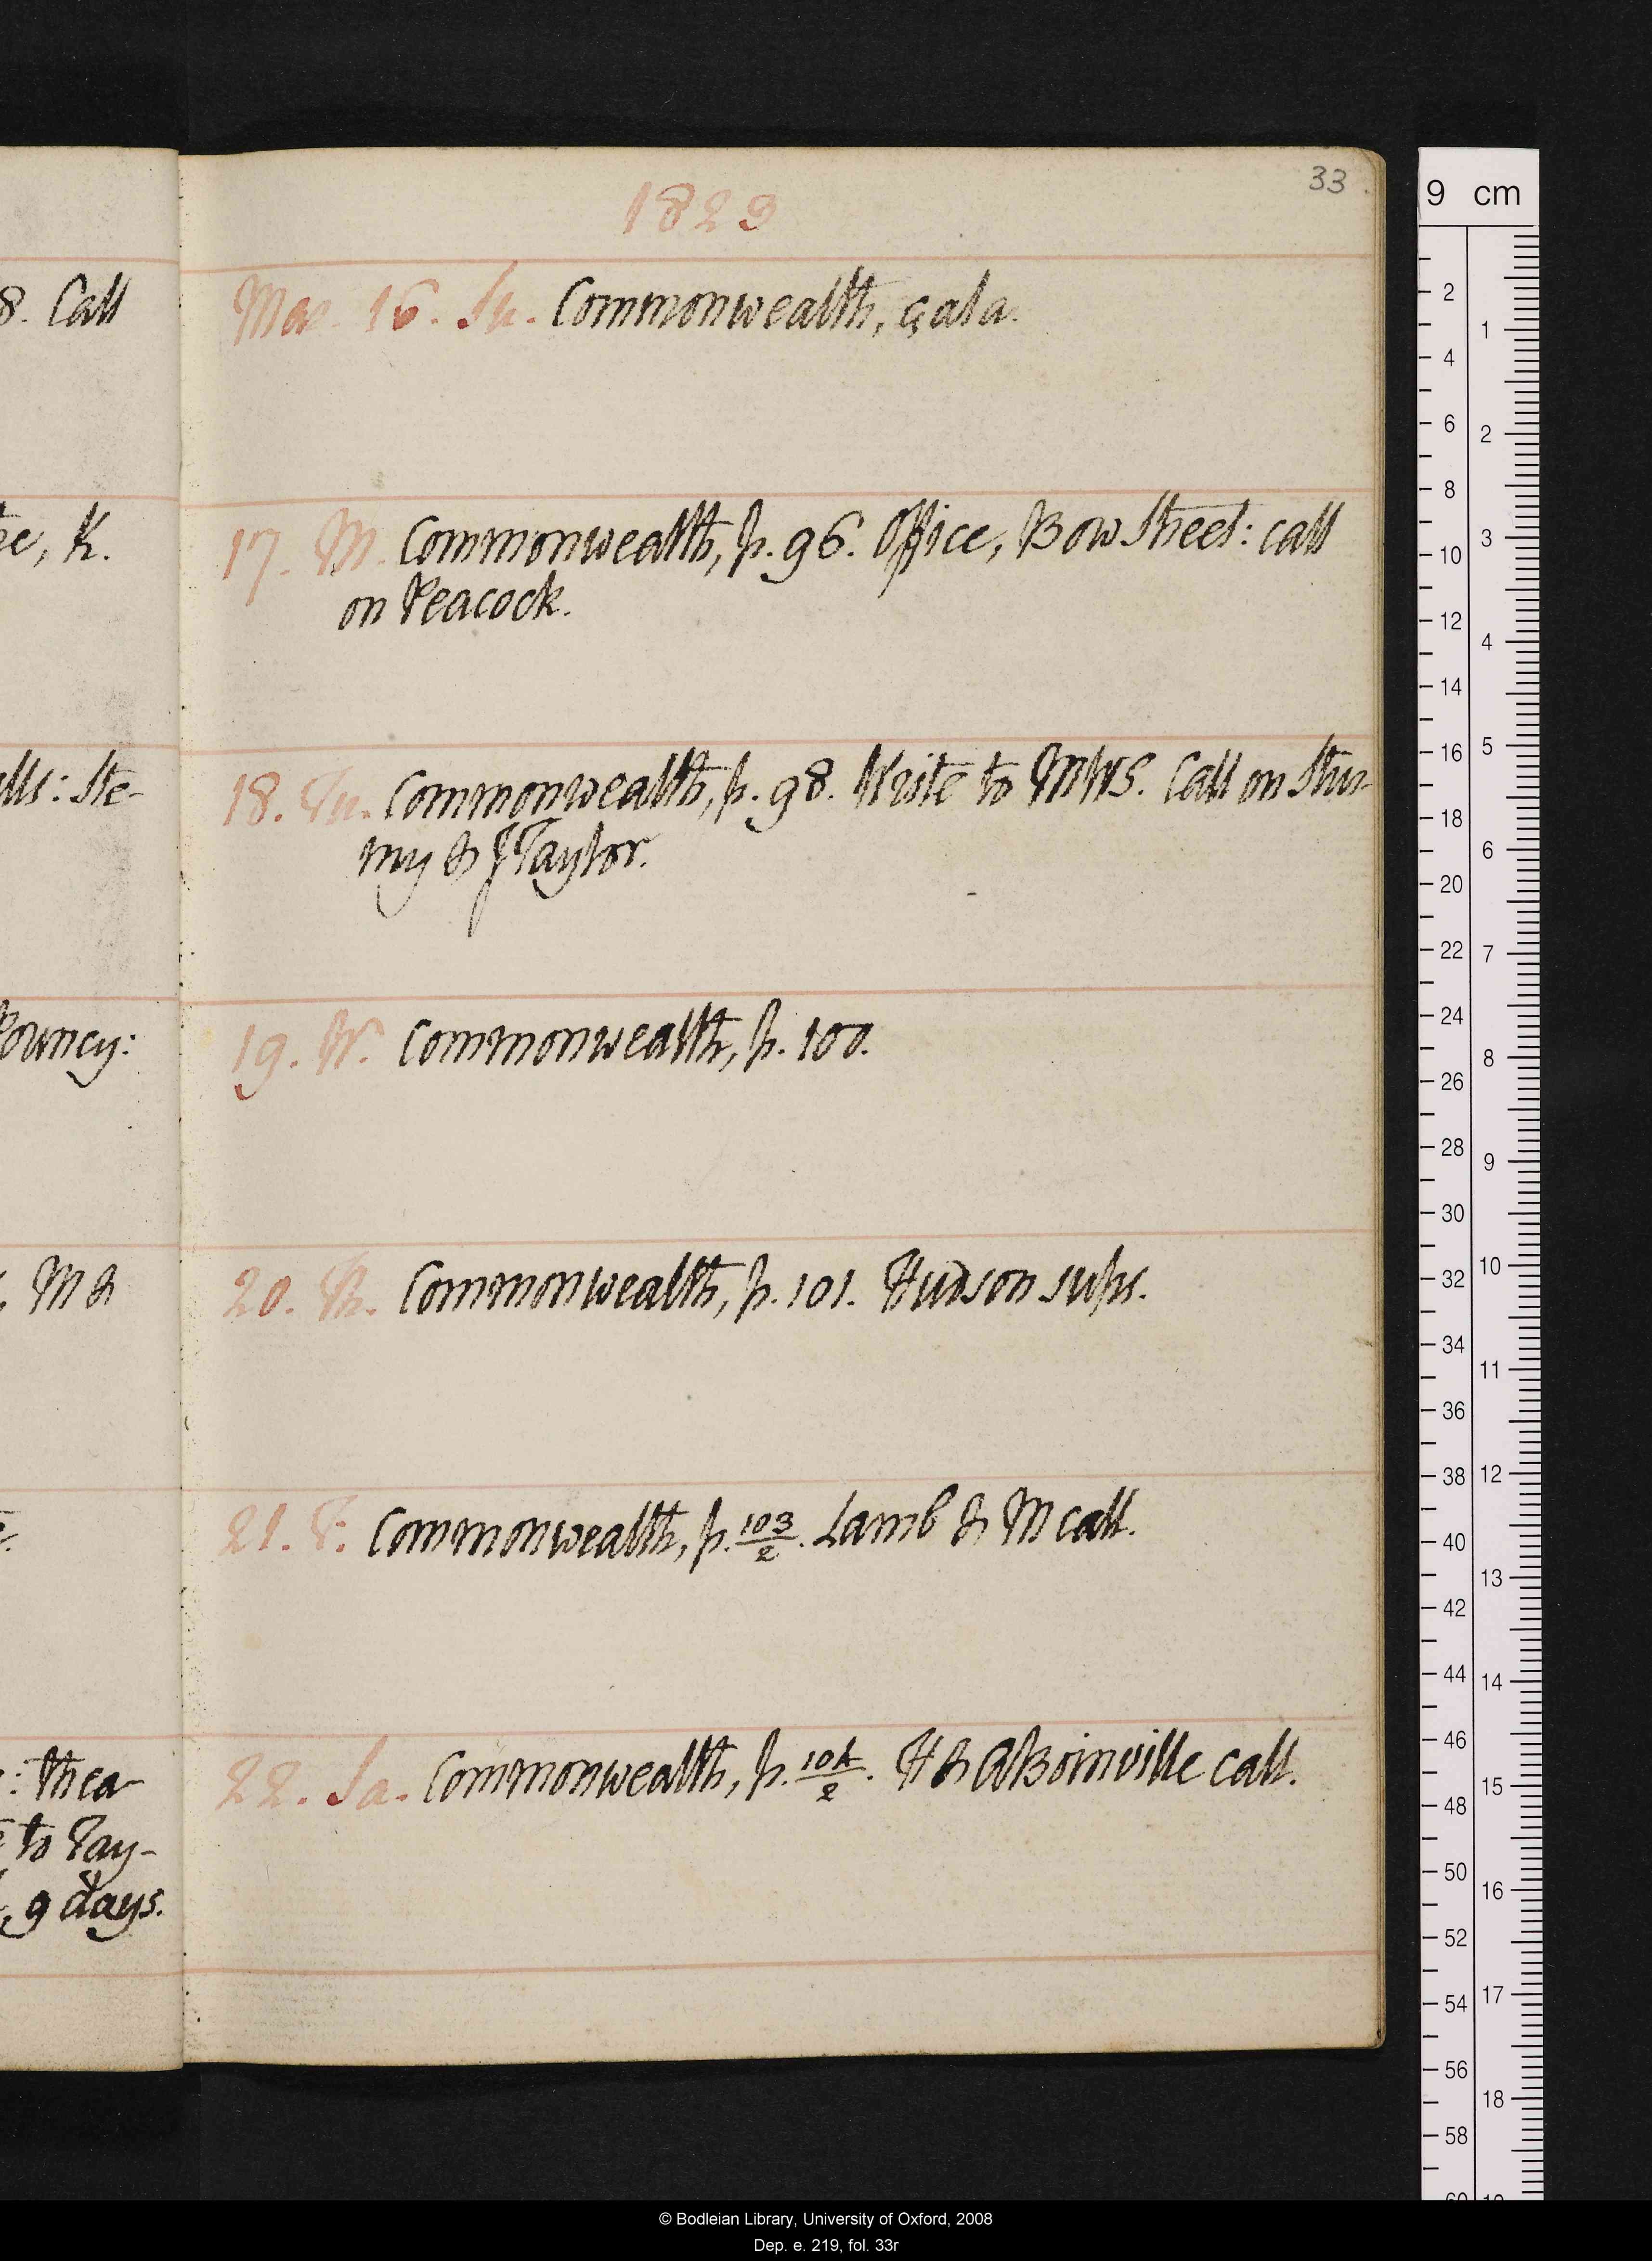 33
1823
8. Call
Mar. 16. Su. Commonwealth, çala.
17. M. Commonwealth, p. 96. Office, Bow Street: call
re, K.
on Peacock.
18. Tu. Commonwealth, p. 98. Write to MWS. Call on Stur-
lls: Ste-
my & J Taylor.
19. W. Commonwealth, p. 100.
Pouncy:
20. Th. Commonwealth, p. 101. Hudson sups.
M &
21. F. Commonwealth, p. 103/2. Lamb & M call.
22. Sa. Commonwealth, p. 104/2. H & A Boinville call.
: thea-
to Tay-
9 days.
9 cm
2 4 6 8 10 12 14 16 18 20 22 24 26 28 30 32 34 36 38 40 42 44 46 48 50 52 54 56 58 60
1 2 3 4 5 6 7 8 9 10 11 12 13 14 15 16 17 18
© Bodleian Library, University of Oxford, 2008
Dep. e. 219, fol. 33r